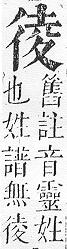 舊註音靈姓
也姓譜無